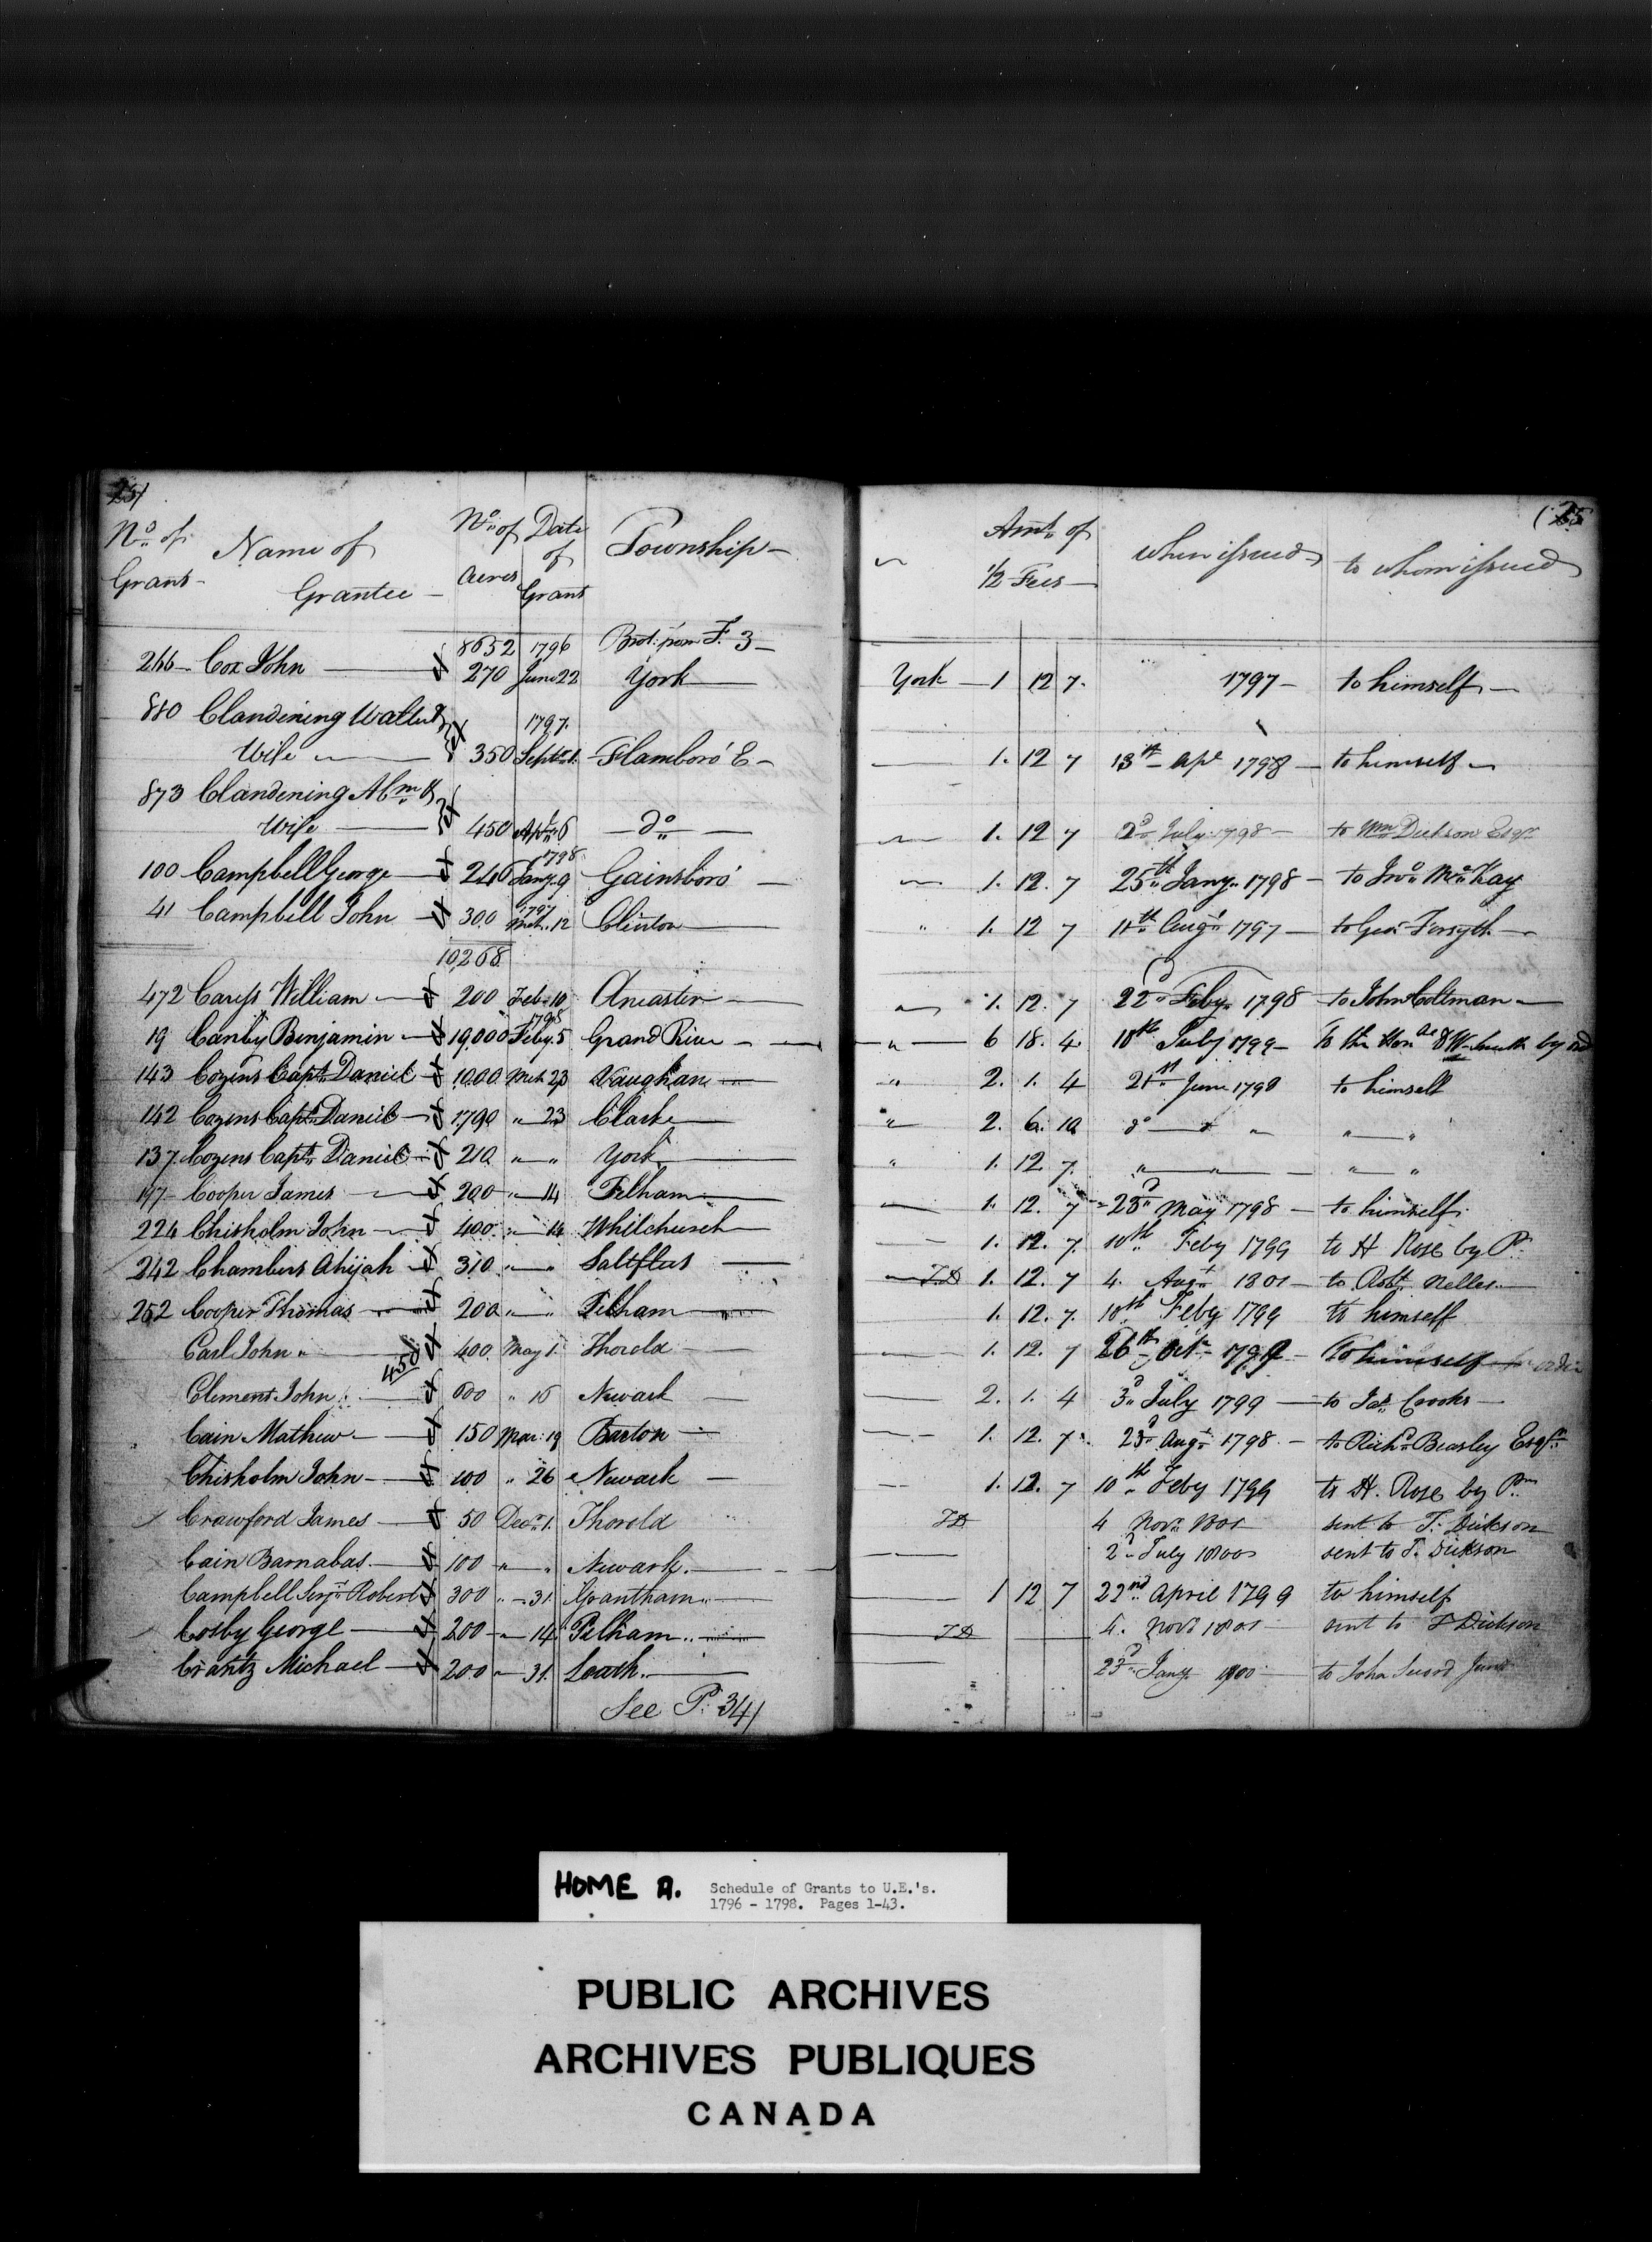 25/
No. of Grant Name of Grantee No. of Acres Date of Grant Township
8652 1796 Brot. from F. 3
266 Cox John 270 June 22 York
880 Clandening Walter & 1797
Wife 350 Septr. 1. Flamboro' E
873 Clandening Abm. &
Wife 450 Apl. 6 do
100 Campbell George 246 1798 Jany. 9 Gainsboro'
41 Campbell John 300 1797 Mch. 12 Clinton
10,268
472 Caress William 200 Feb. 10 Ancaster
19 Canby Benjamin 19,000 1798 Feby. 5 Grand River
143 Cozens Capt. Daniel 1000 Mch 23 Vaughan
142 Cozens Capt. Daniel 1790 " 23 Clarke
137 Cozens Capt. Daniel 210 " " York
197 Cooper James 200 " 14 Pelham
224 Chisholm John 400 " 14 Whitchurch
242 Chambers Ahijah 310 " " Saltfleet
252 Cooper Thomas 200 " " Pelham
Carl John 400 May 1. Thorold
450
Clement John 600 " 16 Newark
Cain Mathew 150 Mar. 19 Barton
Chisholm John 100 " 26 Newark
Crawford James 50 Decr. 1. Thorold
Cain Barnabas 100 " " Newark
Campbell Serjt. Robert 300 " 31. Grantham
Cosby George 200 " 14 Pelham
Crantz Michael 200 " 31. Louth
See P. 34/
(25
Amt. of 1/2 Fees when issued to whom issued
York 1 12 7. 1797 to himself
1. 12 7 13th Apl 1798 to himself
1. 12 7 2d July 1798 to Wm Dickson Esqr
1. 12. 7 25th Jany. 1798 to Jno. McKay
" 1. 12 7 11th Augt 1797 to Geo. Forsyth
1. 12. 7 22d Feby. 1798 to John Coltman
" 6 18. 4 18th July 1799 To the Honble D W Smith by
" 2. 1. 4 21st June 1798 to himself
" 2. 6. 10 do " " "
" 1. 12 7. " " " "
1. 12. 7 23d May 1798 to himself
1. 12. 7. 10th Feby 1799 to H Rose by P.
TD 1. 12. 7 4. Augt 1801 to Robt. Nelles
1. 12. 7. 10th Feby 1799 to himself
1. 12. 7 26th Octr. 1799 To himself
2. 1. 4 3d July 1799 to Jas. Crooks
1. 12. 7. 23d Augt 1798 to Richd. Beasley Esqr.
1. 12. 7 10th Feby 1799 to H. Rose by Pr
TD 4 Novr. 1801 sent to T. Dickson
2d July 1800 sent to T. Dickson
1 12 7 22nd April 1799 to himself
TD 4. Novr 1801 sent to T Dickson
23d Jany. 1800 to John
HOME A. Schedule of Grants to U.E.'s.
1796 - 1798. Pages 1-43.
PUBLIC ARCHIVES
ARCHIVES PUBLIQUES
CANADA